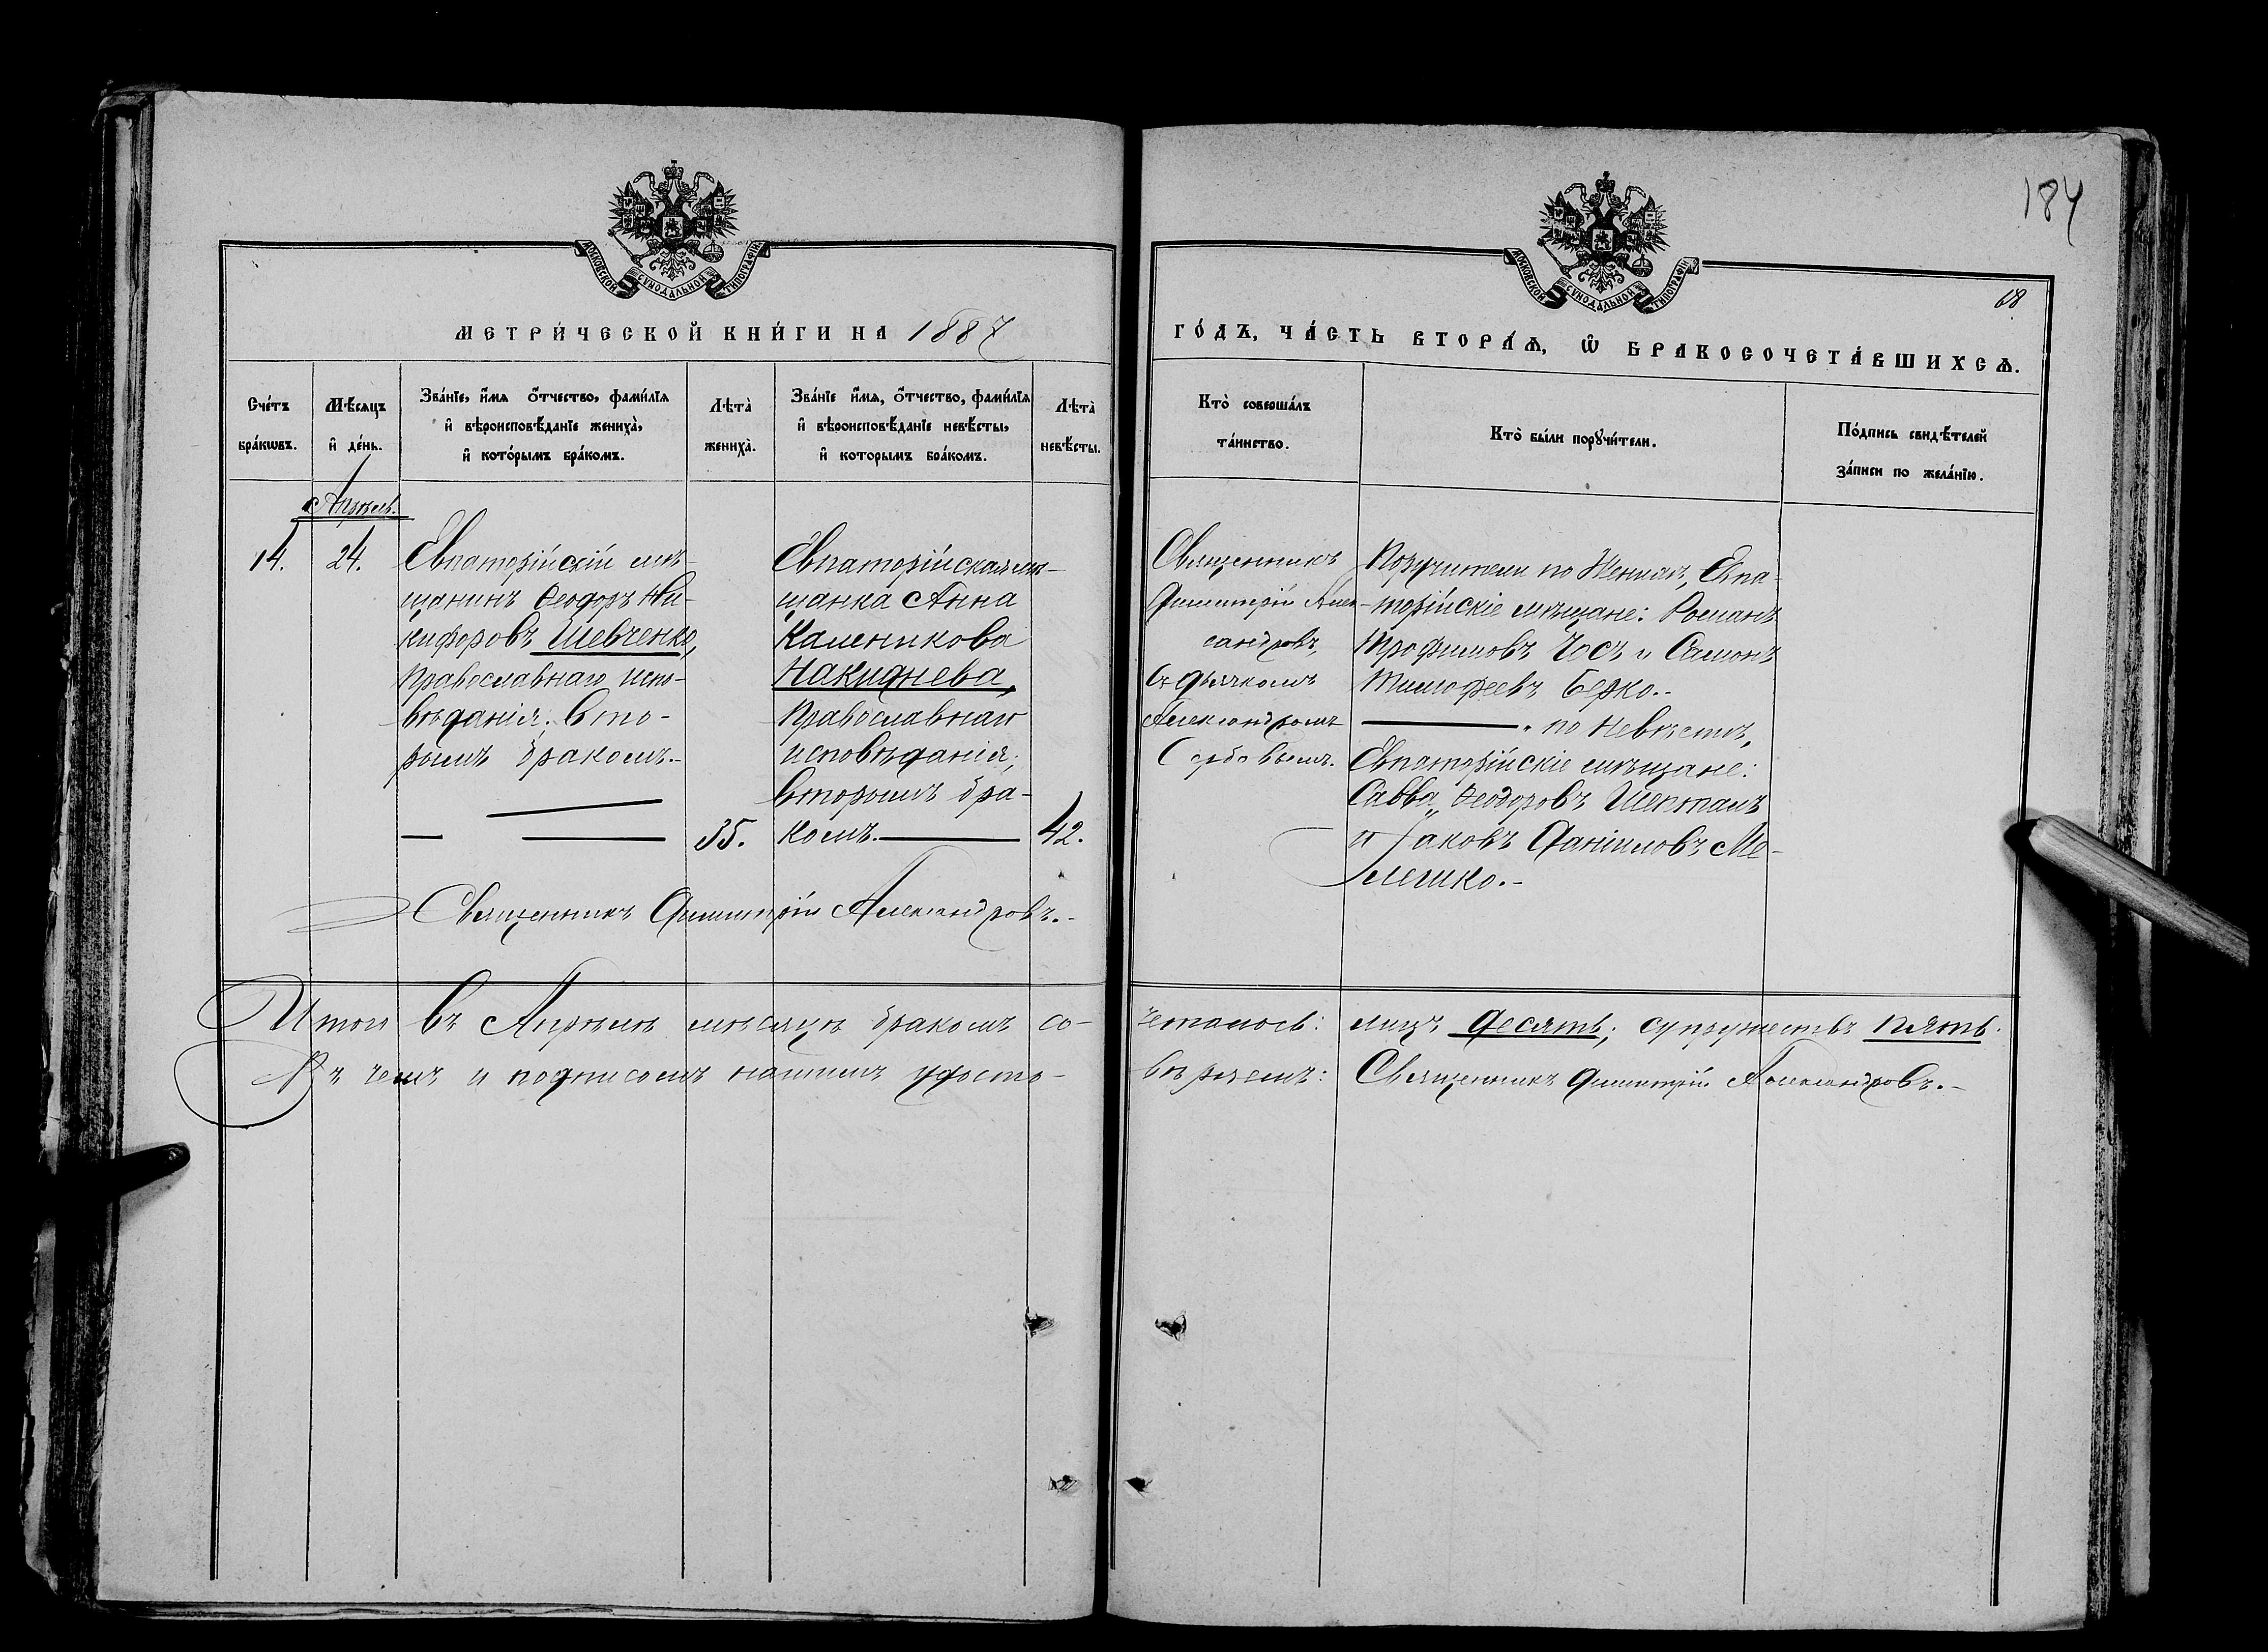 184
МОСКОВСКОЙ СУНОДАЛЬНОЙ ТИПОГРАФІИ
МОСКОВСКОЙ СУНОДАЛЬНОЙ ТИПОГРАФІИ
68
МЕТРИ́ЧЕСКОЙ КНИ́ГИ НА 1887
ГО́ДЪ, ЧА́СТЬ ВТОРА́Ѧ, Ѡ҆ БРАКОСОЧЕТА́ВШИХСѦ.
Сче́тъ
бра́кѡвъ.
Мѣ́сяцъ
и҆ де́нь.
Зва́нїе, и҆́мѧ ѻ҆́тчество, фами́лїѧ
и҆ вѣроисповѣ́данїе женихà,
и҆ кото́рымъ бра́комъ.
Лѣтà
женихà.
Зва́нїе и҆́мѧ, ѻ҆́тчество, фами́лїѧ
и҆ вѣроисповѣ́данїе невѣ́сты,
и҆ которымъ бра́комъ.
Лѣтà
невѣ́сты.
Кто̀ соверша́лъ
та́инство.
Кто̀ бы́ли порꙋчи́тели.
По́дпись свидѣ́телей
за́писи по жела́нїю.
Апрѣль.
14.
24.
Евпаторійскій мѣ-
щанинъ Ѳеодоръ Ни-
кифоровъ Шевченко,
православнаго испо-
вѣданія. Вто-
рымъ бракомъ.-
35.
Евпаторійская мѣ-
щанка Анна
Каленикова
Накиднева,
православнаго
исповѣданія;
вторымъ бра-
комъ.
42.
Священникъ
Димитрій Алек-
сандровъ,
съ дьячкомъ
Александромъ
Сербовымъ.
Поручители по Женихѣ, Евпа-
торійскіе мѣщане: Романъ
Трофимовъ Чосъ и Самонъ
Тимофеевъ Берко.-
" по Невѣстѣ,
Евпаторійскіе мѣщане:
Савва Ѳеодоровъ Шепталъ
и Іаковъ Даниловъ Ме-
лешко.-
Священникъ Димитрій Александровъ.-
Итого въ Апрѣлѣ мѣсяцѣ бракомъ со-
четалось: лицъ десять; супружествъ пять.
Въ чемъ и подписомъ нашимъ удосто-
вѣряемъ: Священникъ Димитрій Александровъ.-